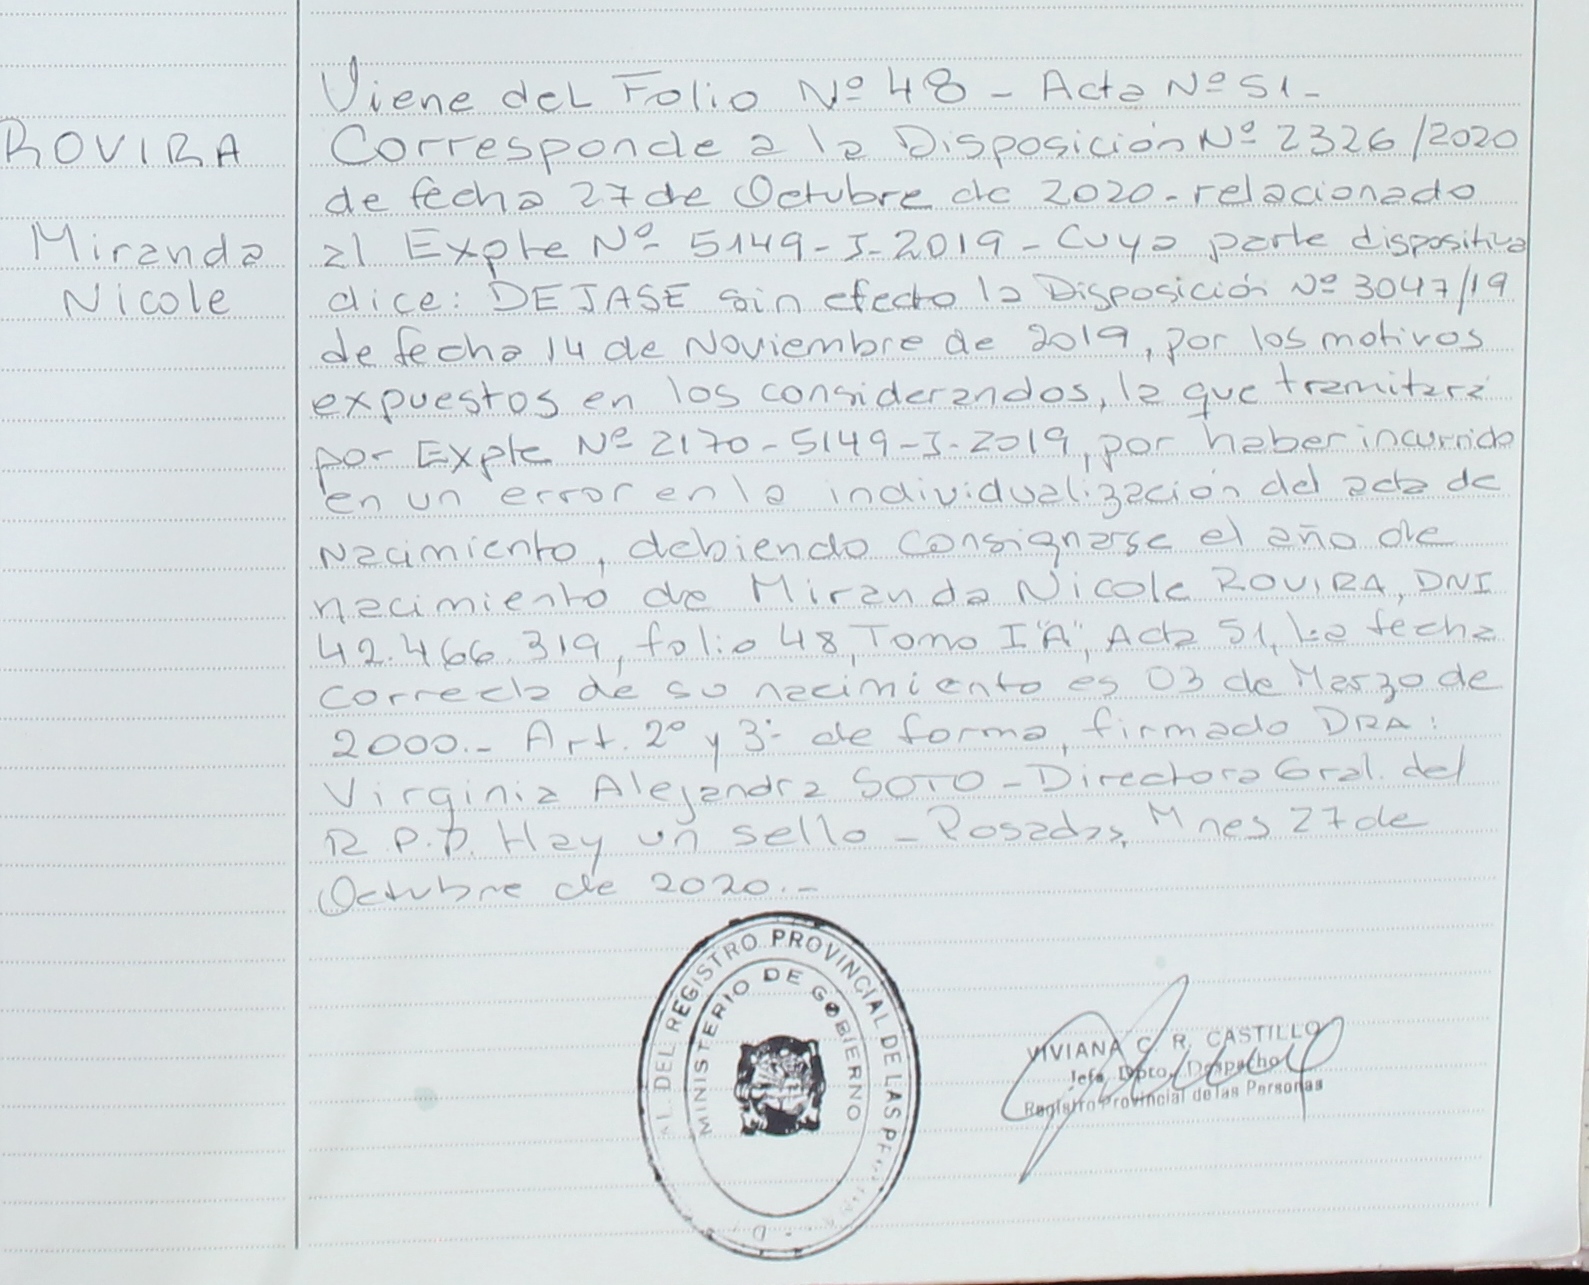 ROVIRA
Miranda
Nicole
Viene del Folio Nº 48 - Acta Nº 51 -
Corresponde a la Disposición Nº 2326/2020
de fecha 27 de Octubre de 2020 - relacionado
al Expte Nº 5149-I-2019 - Cuya parte dispositiva
dice: DEJASE sin efecto la Disposición Nº 3047/19
de fecha 14 de Noviembre de 2019, por los motivos
expuestos en los considerandos, la que tramitará
por Expte Nº 2170-5149-I-2019, por haber incurrido
en un error en la individualización del acta de
Nacimiento, debiendo consignarse el año de
nacimiento de Miranda Nicole ROVIRA, DNI
42.466.319, folio 48, Tomo I "A", Acta 51, La fecha
correcta de su nacimiento es 03 de Marzo de
2000.- Art. 2º y 3º de forma, firmado DRA:
Virginia Alejandra SOTO - Directora Gral. del
R.P.P. Hay un sello - Posadas, Mnes 27 de
Octubre de 2020.-
AL DEL REGISTRO PROVINCIAL DE LAS
MINISTERIO DE GOBIERNO
VIVIANA C. R. CASTILLO
Jefa Dpto. Despacho
Registro Provincial de las Personas